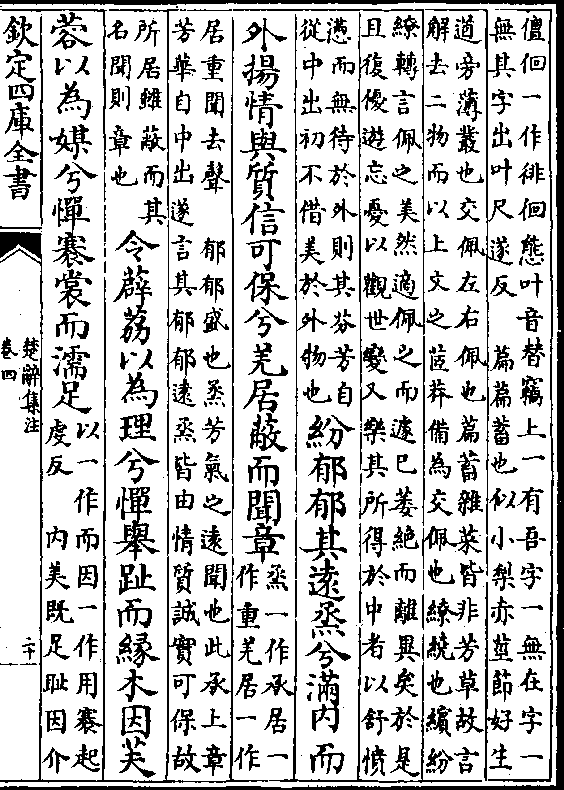 儃佪一作徘徊態叶音替竊上一有吾字一無在字一
無其字出叶尺遂反 萹萹蓄也似小梨赤莖節好生
道旁薄叢也交佩左右佩也萹蓄雜菜皆非芳草故言
解去二物而以上文之茝莽備為交佩也繚繞也繽紛
繚轉言佩之美然適佩之而遽已萎絶而離異矣於是
且復優遊忘憂以觀世變又樂其所得於中者以舒憤
懣而無待於外則其芬芳自
從中出初不借美於外物也
紛郁郁其遠烝兮滿内而
外揚情與質信可保兮羌居蔽而聞章
烝一作承居一
作重羌居一作
居重聞去聲 郁郁盛也烝芳氣之遠聞也此承上章
芳華自中出遂言其郁郁遠烝皆由情質誠實可保故
所居雖蔽而其
名聞則章也
令薜荔以為理兮憚舉趾而縁木因芙
蓉以為媒兮憚褰裳而濡足
以一作而因一作用褰起
虔反 内美既足耻因介
欽定四庫全書
楚辭集注
卷四
二十